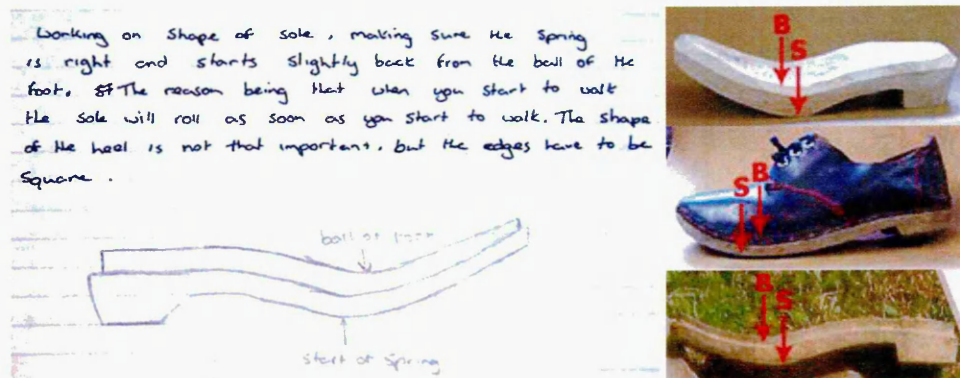 Working on Shape of sole, making sure the Spring
is right and starts slightly back from the ball of the
foot. The reason being that when you start to walk
the sole will roll as soon as you start to walk. The shape
of the heel is not that important, but the edges have to be
Square.
ball of foot
start of spring
B
S
S
B
B
S